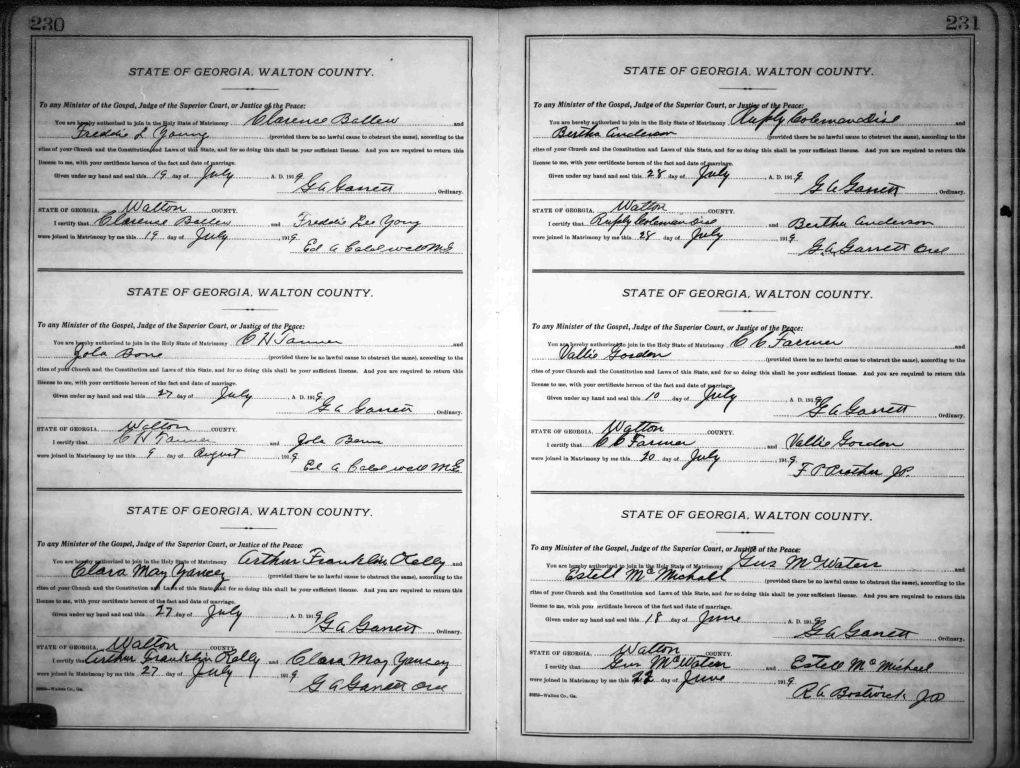 230
STATE OF GEORGIA, WALTON COUNTY.
To any Minister of the Gospel, Judge of the Superior Court, or Justice of the Peace:
You are hereby authorised to join in the Holy State of Matrimony Clarence Ballew and
Freddie L Young (provided there be no lawful cause to obstruct the same), according to the
rites of your Church and the Constitution and Laws of this State, and for so doing this shall be your sufficient license. And you are required to return this
license to me, with your certificate hereon of the fact and date of marriage.
Given under my hand and seal this 19 day of July A. D. 1919
G A Garrett, Ordinary.
STATE OF GEORGIA, Walton COUNTY.
I certify that Clarence Ballew and Freddie Lee Yong
were joined in Matrimony by me this 19 day of July 1919
Ed A Caldwell M.G
STATE OF GEORGIA, WALTON COUNTY.
To any Minister of the Gospel, Judge of the Superior Court, or Justice of the Peace:
You are hereby authorised to join in the Holy State of Matrimony C H Tanner and
Zola (provided there be no lawful cause to obstruct the same), according to the
rites of your Church and the Constitution and Laws of this State, and for so doing this shall be your sufficient license. And you are required to return this
license to me, with your certificate hereon of the fact and date of marriage.
Given under my hand and seal this 27 day of July A. D. 1919
G A Garrett, Ordinary.
STATE OF GEORGIA, Walton COUNTY.
I certify that C H Tanner and Zola
were joined in Matrimony by me this 9 day of August 1919
Ed A Caldwell M.G
STATE OF GEORGIA, WALTON COUNTY.
To any Minister of the Gospel, Judge of the Superior Court, or Justice of the Peace:
You are hereby authorised to join in the Holy State of Matrimony Arthur Franklin Kelly and
Clara May Yancey (provided there be no lawful cause to obstruct the same), according to the
rites of your Church and the Constitution and Laws of this State, and for so doing this shall be your sufficient license. And you are required to return this
license to me, with your certificate hereon of the fact and date of marriage.
Given under my hand and seal this 27 day of July A. D. 1919
G A Garrett, Ordinary.
STATE OF GEORGIA, Walton COUNTY.
I certify that Arthur Franklin Kelly and Clara May Yancey
were joined in Matrimony by me this 27 day of July 1919
G A Garrett Ord
Walton Co., Ga.
231
STATE OF GEORGIA, WALTON COUNTY.
To any Minister of the Gospel, Judge of the Superior Court, or Justice of the Peace:
You are hereby authorised to join in the Holy State of Matrimony Coleman Dial and
Bertha Anderson (provided there be no lawful cause to obstruct the same), according to the
rites of your Church and the Constitution and Laws of this State, and for so doing this shall be your sufficient license. And you are required to return this
license to me, with your certificate hereon of the fact and date of marriage.
Given under my hand and seal this 28 day of July A. D. 1919
G A Garrett, Ordinary.
STATE OF GEORGIA, Walton COUNTY.
I certify that Coleman Dial and Bertha Anderson
were joined in Matrimony by me this 28 day of July 1919
G A Garrett Ord
STATE OF GEORGIA, WALTON COUNTY.
To any Minister of the Gospel, Judge of the Superior Court, or Justice of the Peace:
You are hereby authorised to join in the Holy State of Matrimony C C Farmer and
Vallie Gordon (provided there be no lawful cause to obstruct the same), according to the
rites of your Church and the Constitution and Laws of this State, and for so doing this shall be your sufficient license. And you are required to return this
license to me, with your certificate hereon of the fact and date of marriage.
Given under my hand and seal this 10 day of July A. D. 1919
G A Garrett, Ordinary.
STATE OF GEORGIA, Walton COUNTY.
I certify that C C Farmer and Vallie Gordon
were joined in Matrimony by me this 20 day of July 1919
F P Prather J.P.
STATE OF GEORGIA, WALTON COUNTY.
To any Minister of the Gospel, Judge of the Superior Court, or Justice of the Peace:
You are hereby authorised to join in the Holy State of Matrimony Gus McWaters and
Estell McMichael (provided there be no lawful cause to obstruct the same), according to the
rites of your Church and the Constitution and Laws of this State, and for so doing this shall be your sufficient license. And you are required to return this
license to me, with your certificate hereon of the fact and date of marriage.
Given under my hand and seal this 18 day of June A. D. 1919
G A Garrett, Ordinary.
STATE OF GEORGIA, Walton COUNTY.
I certify that Gus McWaters and Estell McMichael
were joined in Matrimony by me this 22 day of June 1919
R A Bostwick J.P
Walton Co., Ga.